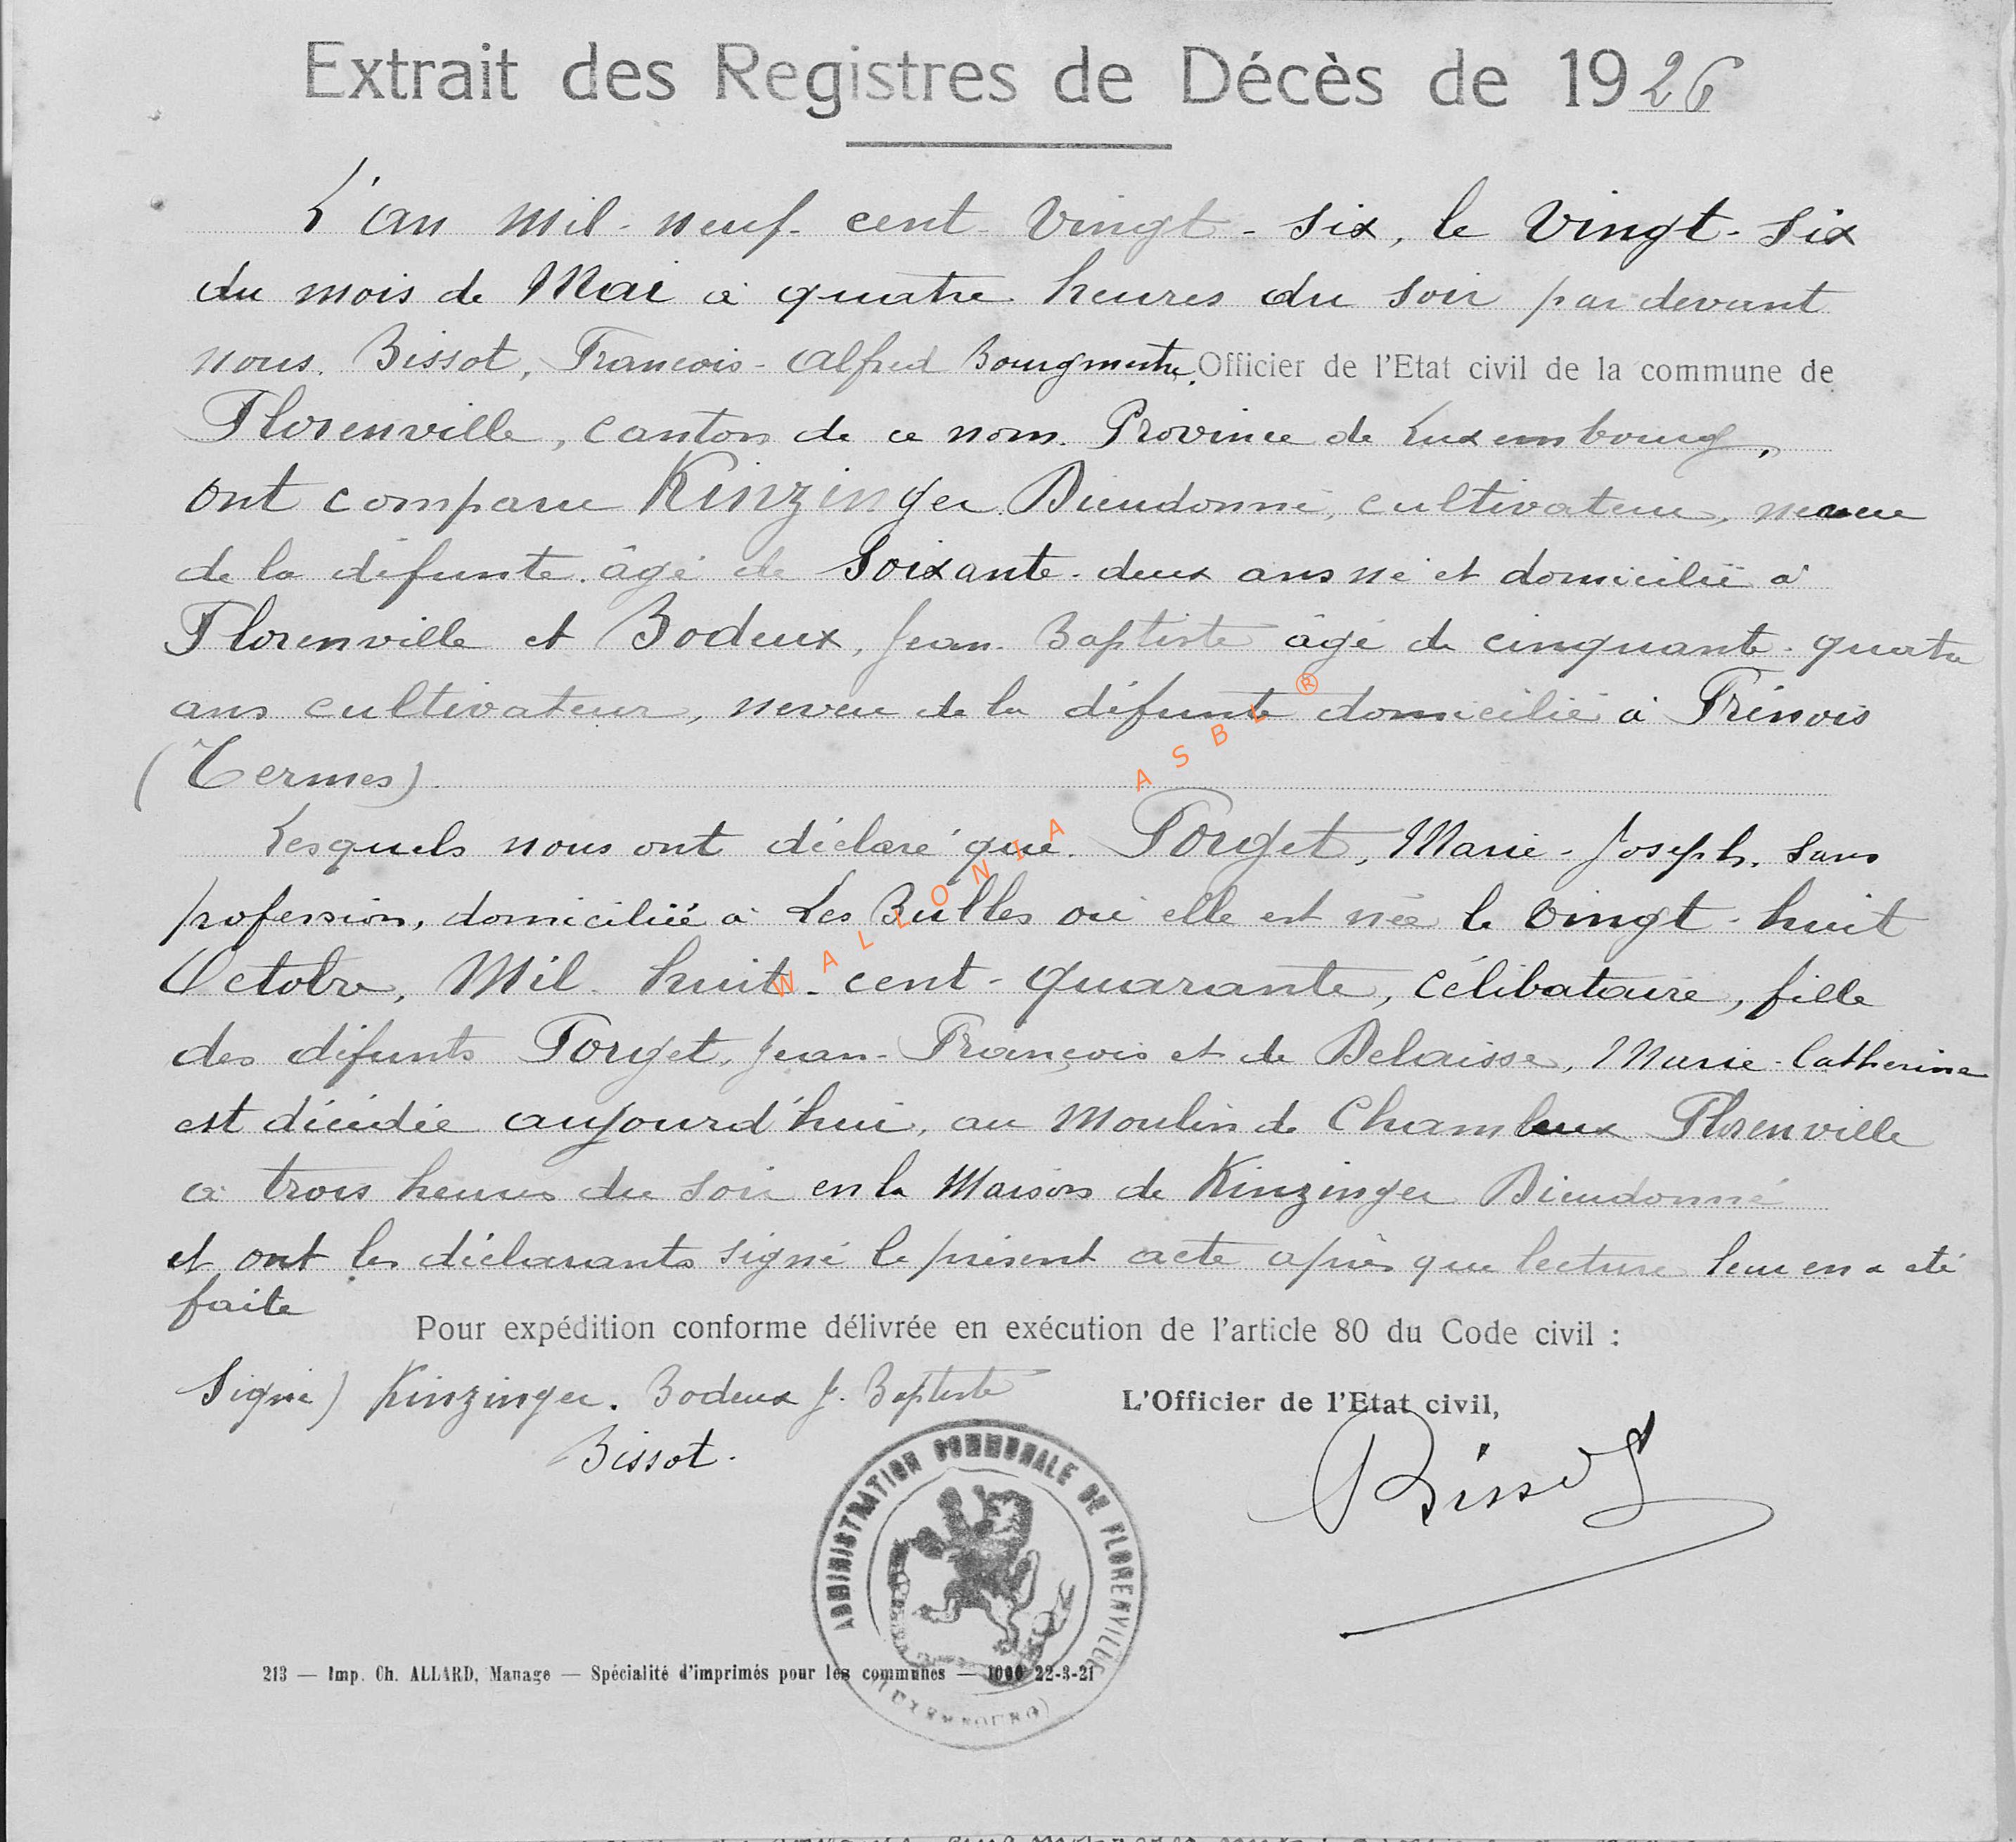 Extrait des Registres de Décès de 1926
L'an mil-neuf-cent-vingt-six, le vingt-six
du mois de Mai à quatre heures du soir par devant
nous. Bissot, Francois-Alfred Bourgmestre, Officier de l'Etat civil de la commune de
Florenville, canton de ce nom. Province de Luxembourg,
ont comparu Kinzinger Dieudonné, cultivateur, neveu
de la défunte. âgé de Soixante-deux ans né et domicilié à
Florenville et Bodeux, Jean-Baptiste âgé de cinquante-quatre
ans cultivateur, neveu de la défunte domicilié à Frénois
(Termes).
Lesquels nous ont déclaré que Forget, Marie-Joseph, sans
profession, domiciliée à Les Bulles où elle est née le vingt-huit
Octobre, Mil-huit-cent-quarante, célibataire, fille
des défunts Forget, Jean-François et de Delaisse, Marie-Catherine
est décédée aujourd'hui, au Moulin de Chambeux Florenville
à trois heures du soir en la Maison de Kinzinger Dieudonné
et ont les déclarants signé le présent acte après que lecture leur en a été
faite
Pour expédition conforme délivrée en exécution de l'article 80 du Code civil :
Signé) Kinzinger. Bodeux J. Baptiste
L'Officier de l'Etat civil,
Bissot.
Bissot
ADMINISTRATION COMMUNALE DE FLORENVILLE
(LUXEMBOURG)
213 — Imp. Ch. ALLARD, Manage — Spécialité d'imprimés pour les communes — 1000 22-3-21
WALLONIA ASBL ®